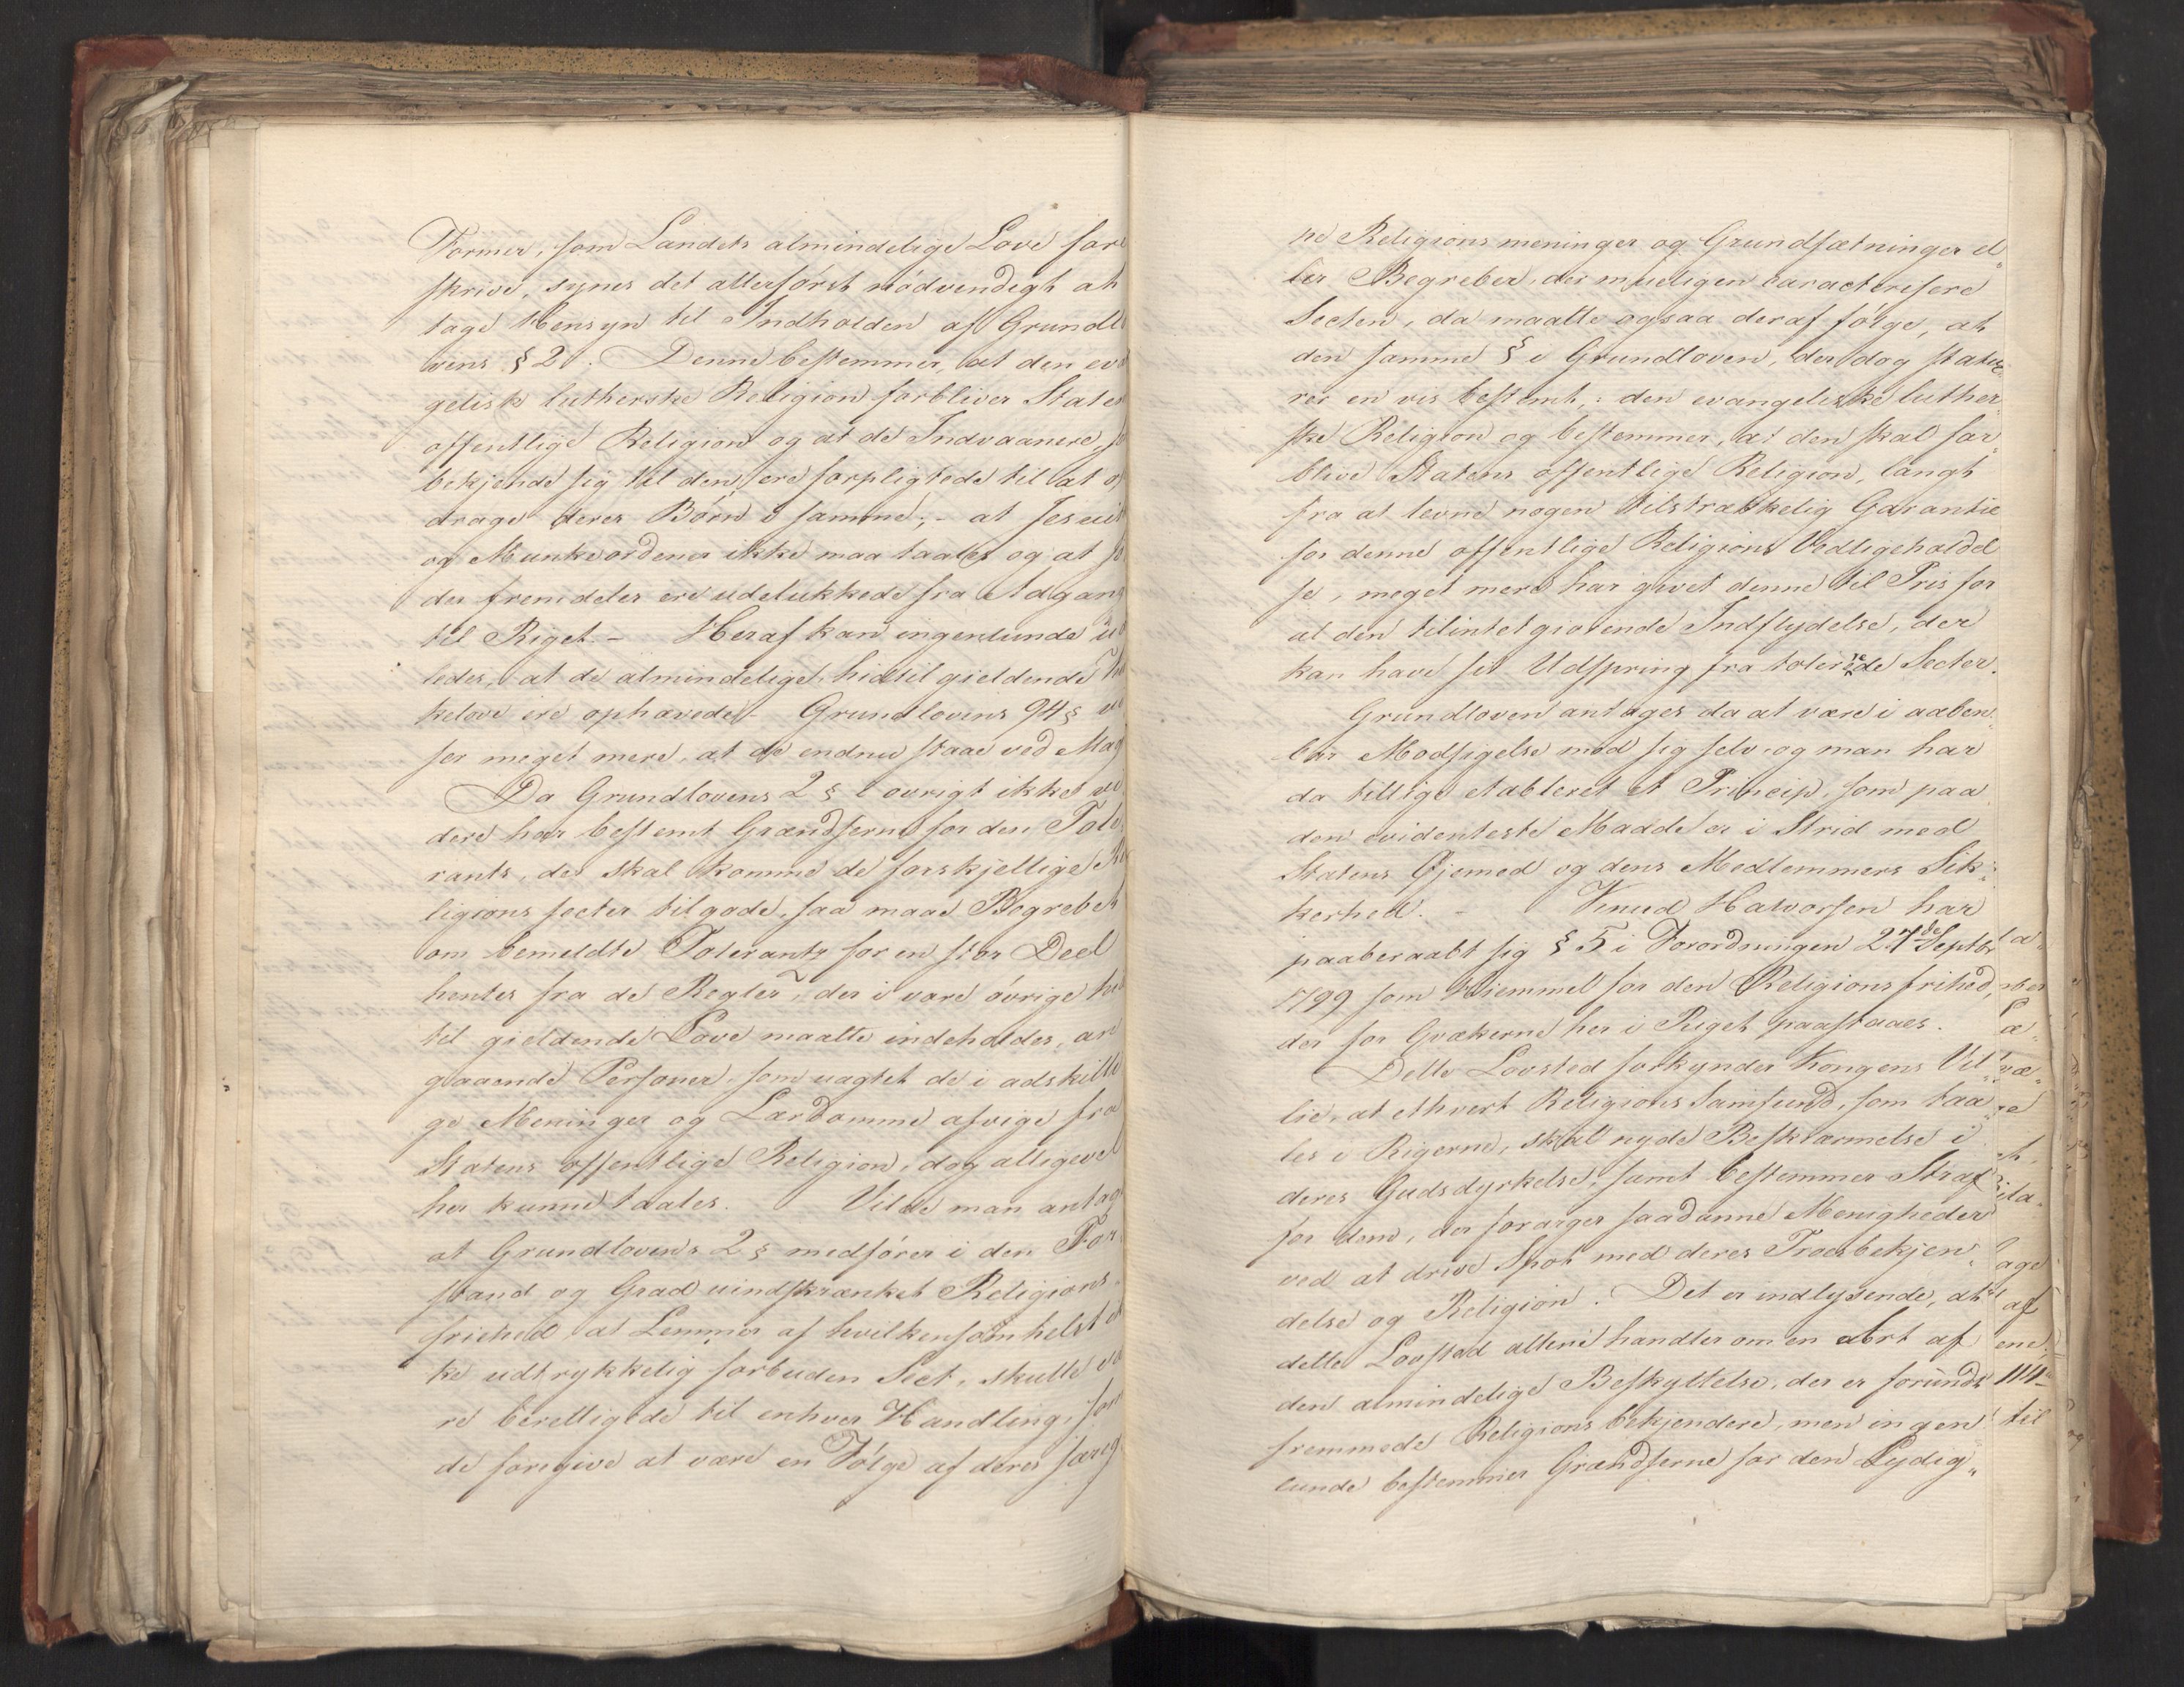 Former, som Landets almindelige Love fore
skrive, synes det allerførst nødvendigt at
tage Hensyn til Indholden af Grundl
vens § 2. Denne bestemmer, at den ev
gelisk lutherske Religion forbliver State
offentlige Religion og at de Indvaanere, s
bekjende sig til den, ere forpligtede til at o
drage deres Børn i samme; - at Jesuit
og Munkeordener ikke maa taales og at Jø
der fremdeles ere udelukkede fra Adgang
til Riget. - Heraf kan ingenlunde ud
ledes, at de almindelige, hidtil gieldende
kelove ere ophævede - Grundlovens 94 §
ser meget mere, at de endnu staae ved Mag
Da Grundlovens 2 § i øvrigt ikke vi
dere har bestemt Grændserne for den Tole
rants, der skal komme de forskjellige Re
ligions secter tilgode, saa maae Begrebet
om bemeldte Tolerants for en stor Deel
hentes fra de Regler, der i vare øvrige hid
til gieldende Love maatte indeholdes, an
gaaende Personer, som uagtet de i adskilli
ge Meninger og Lærdomme afvige fra
Statens offentlige Religion, dog alligevel
her kunne taales. Vilde man antage
at Grundlovens 2 § medfører i den For
stand og Grad uindskrænket Religions-
friehed at Lemmer af hvilkensomhelst ik
ke udtrykkelig forbuden Sect, skulle væ
re berettigede til enhver Handling, som
de foregive at være en Følge af deres særeg
ne Religions meninger og Grundsætninger el„
ler Begreber, der mueligen caracterisere
Secten, da maatte ogsaa deraf følge, at
den samme § i Grundloven, der dog statue„
rer en vis bestemt,: den evangeliske luther„
ske Religion og bestemmer, at den skal for„
blive Statens offentlige Religion, langt
fra at levne nogen tilstrækkelig Garantie
for denne offentlige Religions Vedligeholdel
se, meget mere har givet denne til Pris for
al den tilintetgiørende Indflydelse, der
kan have sit Udspring fra tolerede Secter.
Grundloven antages da at være i aaben„
bar Modsigelse med sig selv og man har
da tillige etableret et Princip, som paa
den evidenteste Maade er i Strid med
Statens Øjemed og dens Medlemmers Sik„
kerhed. - Knud Halvorsen har
paaberaabt sig § 5 i Forordningen 27de Septbr
1799 som Hiemmel for den Religionsfrihed,
der for Qvækerne her i Riget paastaaes.
Dette Lovsted forkynder Kongens Vil„
lie, at ethvert Religions Samfund, som taa„
les i Rigerne, skal nyde Beskiærmelse i
deres Gudsdyrkelse, samt bestemmer Straf
for dem, der forarger saadanne Menigheder
ved at drive Spot med deres Troesbekjen„
delse og Religion. Det er indlysende, at
dette Lovsted allene handler om en Art af
den almindelige Beskyttelse, der er forundt
fremmede Religionsbekjendere, men ingen
lunde bestemmer Grændserne for den Lydig„